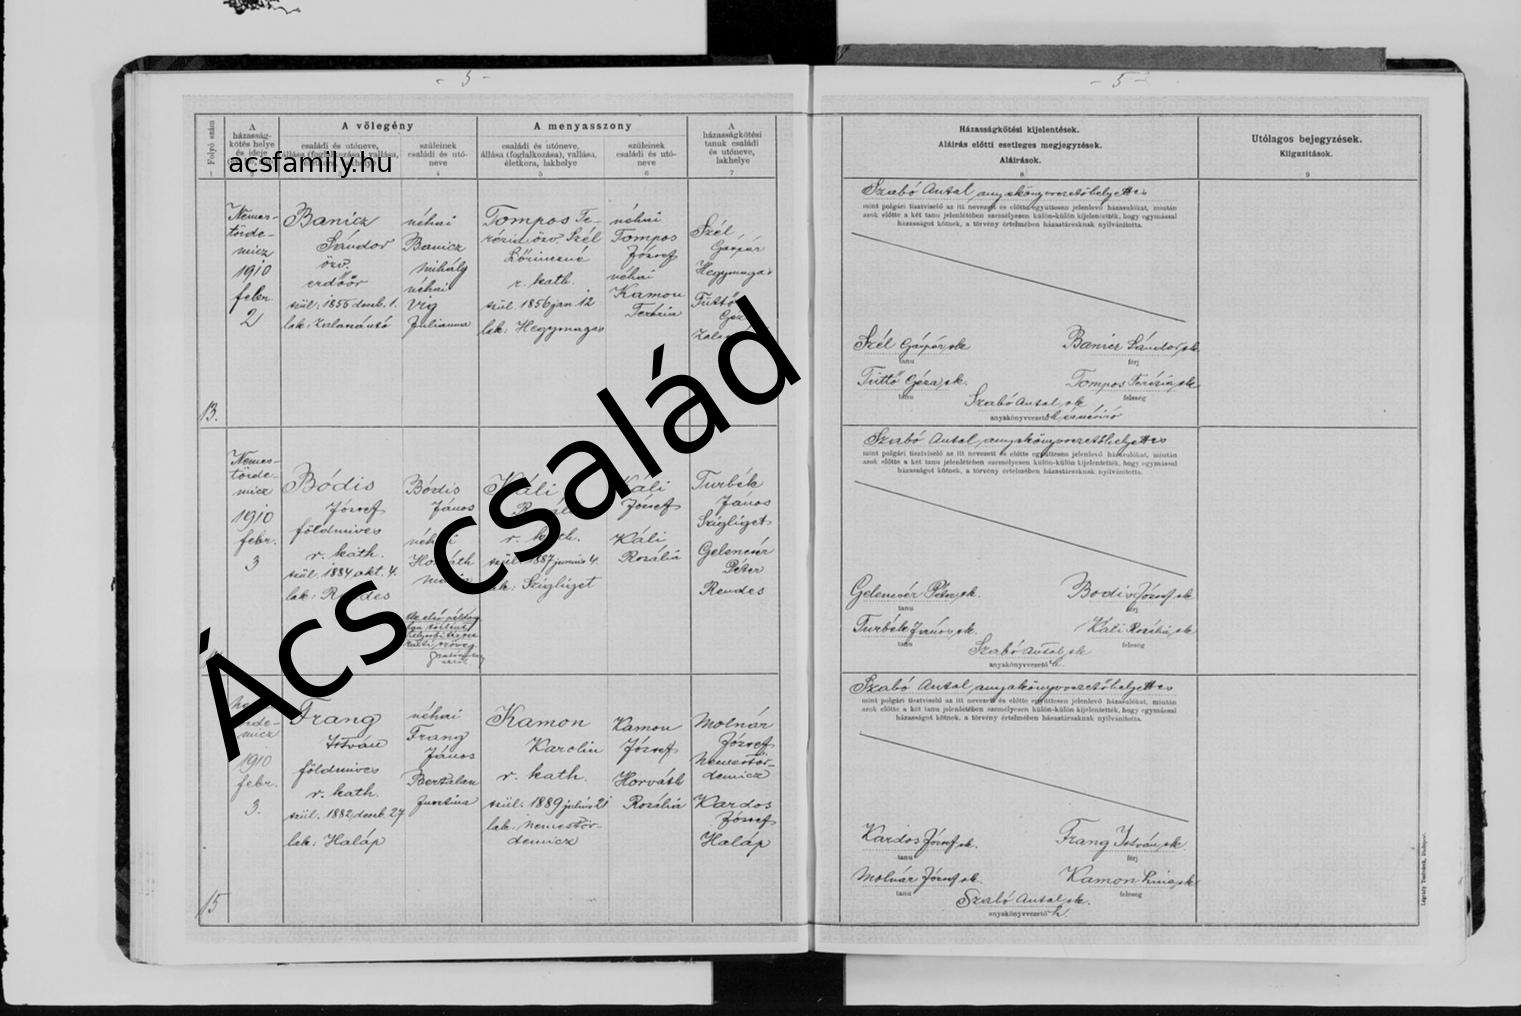 - 5 -
- 5 -
Folyó szám
A
házasság-
kötés helye
és ideje
A vőlegény
családi és utóneve,
állása (foglalkozása), vallása,
szüleinek
családi és utó-
neve
A menyasszony
családi és utóneve,
állása (foglalkozása), vallása,
életkora, lakhelye
szüleinek
családi és utó-
neve
A
házasságkötési
tanuk családi
és utóneve,
lakhelye
Házasságkötési kijelentések.
Aláírás előtti esetleges megjegyzések.
Aláírások.
Utólagos bejegyzések.
Kiigazítások.
1
4
5
6
7
8
9
acsfamily.hu
Ács család
13.
Nemes-
törde-
micz
1910
febr.
2
Banicz
Sándor
özv.
erdőőr
szül: 1855 decb. 1.
lak: Zalahaláp
néhai
Banicz
Mihály
néhai
Vig
Julianna
Tompos Te-
rézia özv. Szél
Lőrinczné
r. kath.
szül. 1856 jan. 12
lak: Hegymagas
néhai
Tompos
József
néhai
Kamon
Terézia
Szél
Gáspár
Hegymagas
Tüttő
Szabó Antal anyakönyvvezetőhelyettes
mint polgári tisztviselő az itt nevezett és előtte együttesen jelenlevő házasulókat, miután
azok előtte a két tanu jelenlétében személyesen külön-külön kijelentették, hogy egymással
házasságot kötnek, a törvény értelmében házastársaknak nyilvánította.
Szél Gáspár sk
tanu
Banicz Sándor sk.
férj
Tüttő Géza sk.
tanu
Tompos Terézia sk
feleség
Szabó Antal sk
anyakönyvvezető h.
Nemes-
törde-
micz
1910
febr.
3
Bódis
József
földmives
r. kath.
szül. 1884 okt. 4.
lak: Rendes
Bódis
János
néhai
Horváth
Káli
r. kath.
szül. 1887 junius 4.
lak: Szigliget
Káli
József
Káli
Rozália
Turbék
János
Szigliget
Gelencsér
Péter
Rendes
Az első példány-
Szabó Antal anyakönyvvezetőhelyettes
mint polgári tisztviselő az itt nevezett és előtte együttesen jelenlevő házasulókat, miután
azok előtte a két tanu jelenlétében személyesen külön-külön kijelentették, hogy egymással
házasságot kötnek, a törvény értelmében házastársaknak nyilvánította.
Gelencsér Péter sk.
tanu
Bodis József sk
férj
Turbék János sk.
tanu
Káli Rozália sk
feleség
Szabó Antal sk
anyakönyvvezető h.
15
micz
1910
febr.
3.
Frang
István
földmives
r. kath.
szül. 1882 decb. 27
lak: Haláp
néhai
Frang
János
Bertalan
Jusztina
Kamon
Karolin
r. kath.
szül. 1889 julius 21
lak: Nemestör-
demicz
Kamon
József
Horváth
Rozália
Molnár
József
Nemestör-
demicz
Kardos
József
Haláp
Szabó Antal anyakönyvvezetőhelyettes
mint polgári tisztviselő az itt nevezett és előtte együttesen jelenlevő házasulókat, miután
azok előtte a két tanu jelenlétében személyesen külön-külön kijelentették, hogy egymással
házasságot kötnek, a törvény értelmében házastársaknak nyilvánította.
Kardos József sk.
tanu
Frang István sk.
férj
Molnár József sk.
tanu
Kamon Lina sk
feleség
Szabó Antal sk.
anyakönyvvezető h.
Légrády Testvérek, Budapest.